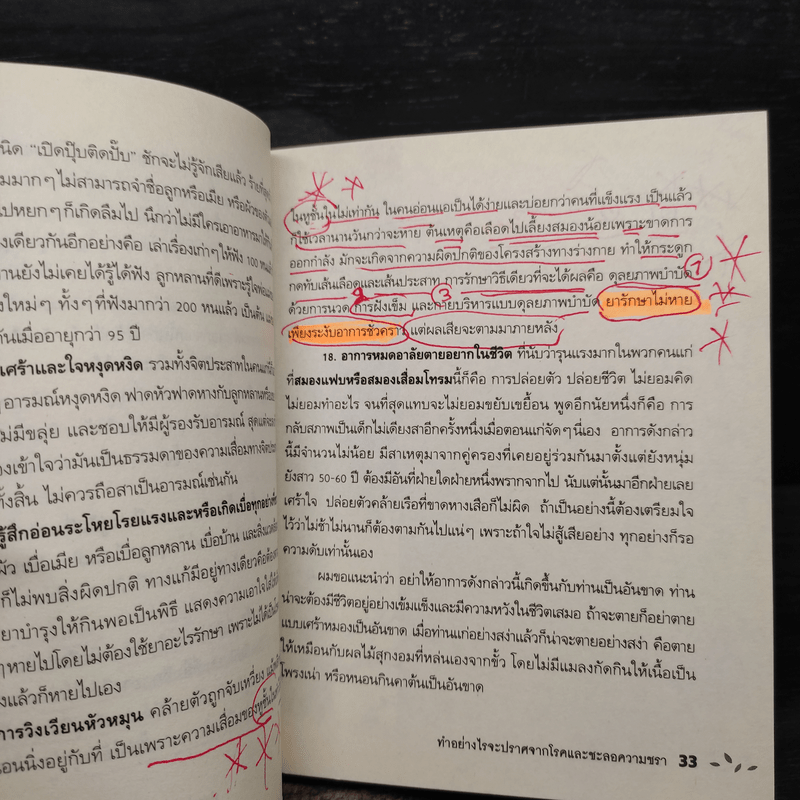 นิด "เปิดปุ๊บติดปั๊บ" ชักจะไม่รู้จักเสียแล้ว
มมากๆ ไม่สามารถจำชื่อลูกหรือเมีย หรือผัวของ
ปหยกๆ ก็เกิดลืมไป นึกว่าไม่มีใครเอาอาหารมาให้
งเดียวกันอีกอย่างคือ เล่าเรื่องเก่าๆ ให้ฟัง 100 หน
านยังไม่เคยได้รู้ได้ฟัง ลูกหลานที่ดีเพราะรู้ใจพ่อแม่
งใหม่ๆ ทั้งๆ ที่ฟังมากว่า 200 หนแล้ว เป็นต้น
กันเมื่ออายุกว่า 95 ปี
เศร้าและใจหงุดหงิด รวมทั้งจิตประสาทในคนแก่
อารมณ์หงุดหงิด ฟาดหัวฟาดหางกับลูกหลานหรือ
ม่มีขลุ่ย และชอบให้มีผู้รองรับอารมณ์ สุดแต่จะ
งเข้าใจว่ามันเป็นธรรมดาของความเสื่อมทางจิต
ทั้งสิ้น ไม่ควรถือสาเป็นอารมณ์เช่นกัน
รู้สึกอ่อนระโหยโรยแรงและหรือเกิดเบื่อทุกอย่าง
ผัว เบื่อเมีย หรือเบื่อลูกหลาน เบื่อบ้าน และสิ่งแวดล้อม
ก็ไม่พบสิ่งผิดปกติ ทางแก้มีอยู่ทางเดียวคือต้อง
ยาบำรุงให้กินพอเป็นพิธี แสดงความเอาใจใส่
ๆ หายไปโดยไม่ต้องใช้ยาอะไรรักษา เพราะไม่ได้เป็น
งแล้วก็หายไปเอง
การวิงเวียนหัวหมุน คล้ายตัวถูกจับเหวี่ยง
อนนิ่งอยู่กับที่ เป็นเพราะความเสื่อมของหูชั้นใน
ในหูชั้นในไม่เท่ากัน ในคนอ่อนแอเป็นได้ง่ายและบ่อยกว่าคนที่แข็งแรง เป็นแล้ว
ก็ใช้เวลานานวันกว่าจะหาย ต้นเหตุคือเลือดไปเลี้ยงสมองน้อยเพราะขาดการ
ออกกำลัง มักจะเกิดจากความผิดปกติของโครงสร้างทางร่างกาย ทำให้กระดูก
กดทับเส้นเลือดและเส้นประสาท การรักษาวิธีเดียวที่จะได้ผลคือ ดุลยภาพบำบัด
ด้วยการนวด การฝังเข็ม และกายบริหารแบบดุลยภาพบำบัด ยารักษาไม่หาย
เพียงระงับอาการชั่วคราว แต่ผลเสียจะตามมาภายหลัง
18. อาการหมดอาลัยตายอยากในชีวิต ที่นับว่ารุนแรงมากในพวกคนแก่
ที่สมองแฟบหรือสมองเสื่อมโทรมนี้ก็คือ การปล่อยตัว ปล่อยชีวิต ไม่ยอมคิด
ไม่ยอมทำอะไร จนที่สุดแทบจะไม่ยอมขยับเขยื้อน พูดอีกนัยหนึ่งก็คือ การ
กลับสภาพเป็นเด็กไม่เดียงสาอีกครั้งหนึ่งเมื่อตอนแก่จัดๆ นี่เอง อาการดังกล่าว
นี้มีจำนวนไม่น้อย มีสาเหตุมาจากคู่ครองที่เคยอยู่ร่วมกันมาตั้งแต่ยังหนุ่ม
ยังสาว 50-60 ปี ต้องมีอันที่ฝ่ายใดฝ่ายหนึ่งพรากจากไป นับแต่นั้นมาอีกฝ่ายเลย
เศร้าใจ ปล่อยตัวคล้ายเรือที่ขาดหางเสือก็ไม่ผิด ถ้าเป็นอย่างนี้ต้องเตรียมใจ
ไว้ว่าไม่ช้าไม่นานก็ต้องตามกันไปแน่ๆ เพราะถ้าใจไม่สู้เสียอย่าง ทุกอย่างก็รอ
ความดับเท่านั้นเอง
ผมขอแนะนำว่า อย่าให้อาการดังกล่าวนี้เกิดขึ้นกับท่านเป็นอันขาด ท่าน
น่าจะต้องมีชีวิตอยู่อย่างเข้มแข็งและมีความหวังในชีวิตเสมอ ถ้าจะตายก็อย่าตาย
แบบเศร้าหมองเป็นอันขาด เมื่อท่านแก่อย่างสง่าแล้วก็น่าจะตายอย่างสง่า คือตาย
ให้เหมือนกับผลไม้สุกงอมที่หล่นเองจากขั้ว โดยไม่มีแมลงกัดกินให้เนื้อเป็น
โพรงเน่า หรือหนอนกินคาต้นเป็นอันขาด
ทำอย่างไรจะปราศจากโรคและชะลอความชรา 33